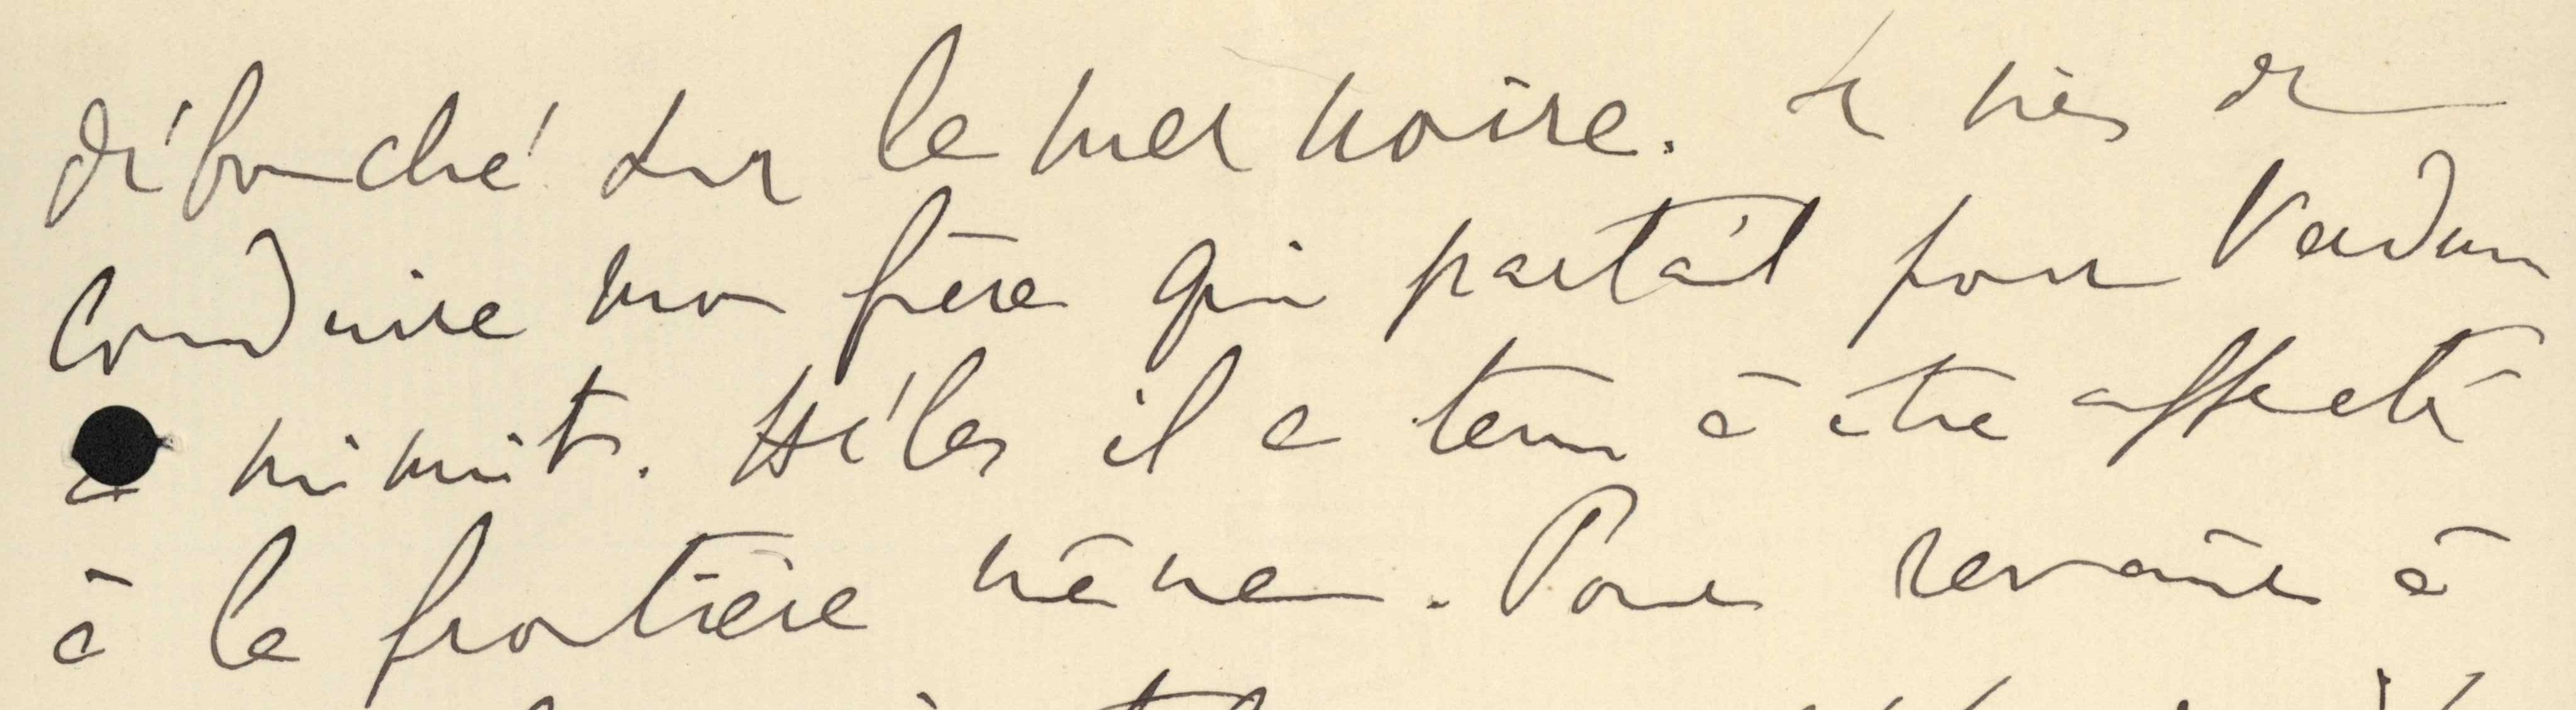 débouché sur la mer noire. Je viens de
conduire mon frère qui partait pour Verdun
à minuit. Hélas il a tenu à être affecté
à la frontière même. Pour revenir à